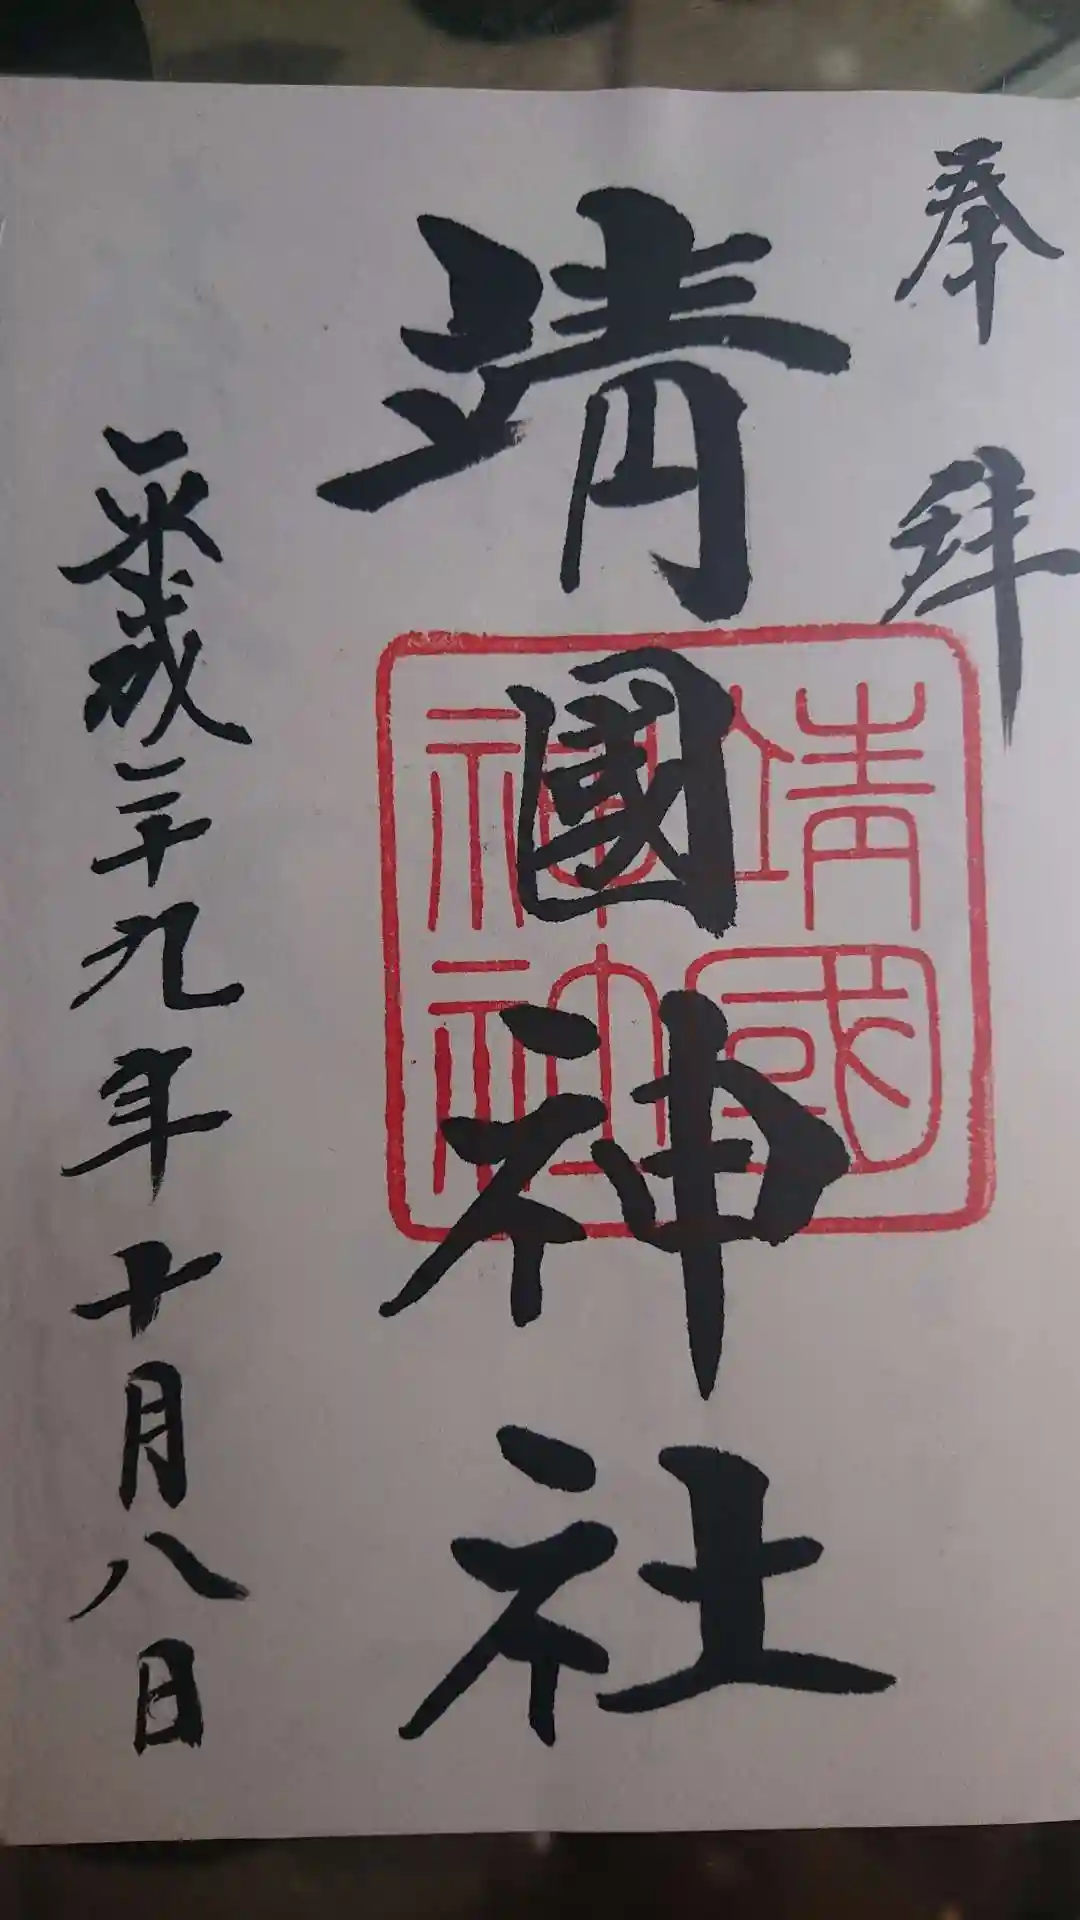 奉拜
靖國神社
靖國
神社
平成二十九年十月八日